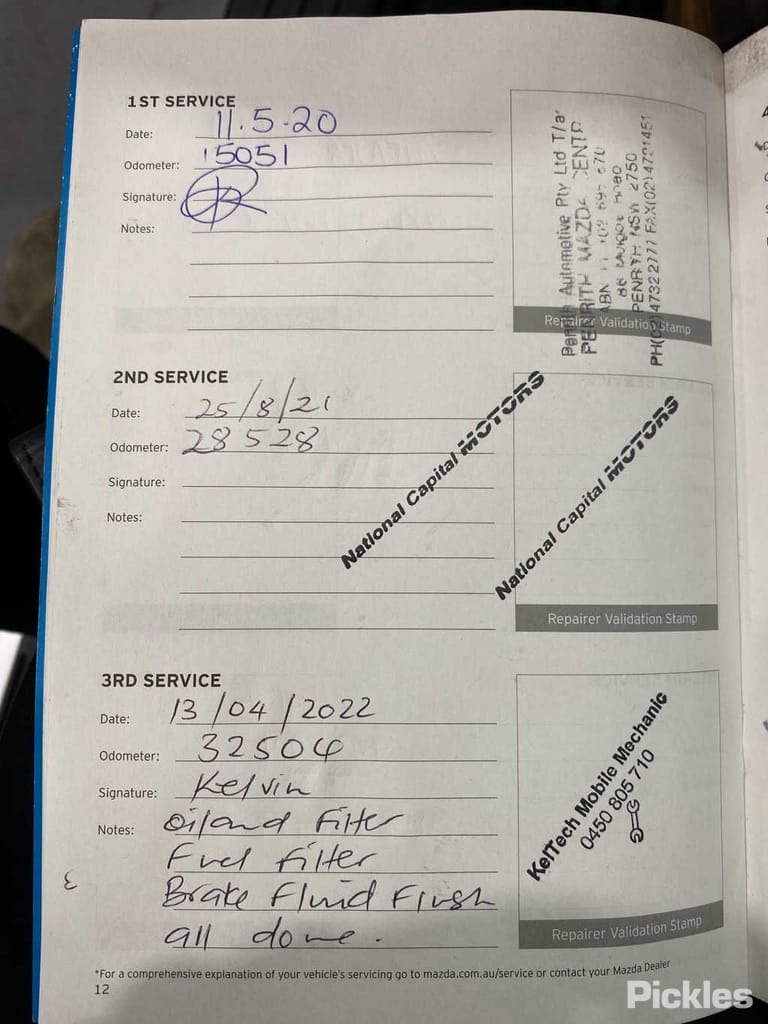 1ST SERVICE
Date: 11.5.20
Odometer: 15051
Signature:
Notes:
Penrith Automotive Pty Ltd T/a
PENRITH MAZDA CENTR
ABN
PENRITH NSW 2750
PH(02)47322777 FAX(02)4721451
Repairer Validation Stamp
2ND SERVICE
Date: 25/8/21
Odometer: 28528
Signature:
Notes:
National Capital MOTORS
National Capital MOTORS
Repairer Validation Stamp
3RD SERVICE
Date: 13/04/2022
Odometer: 32504
Signature: Kelvin
Notes: Oil and Filter
Fuel Filter
Brake Fluid Flush
all done.
KelTech Mobile Mechanic
0450 805 710
Repairer Validation Stamp
*For a comprehensive explanation of your vehicle's servicing go to mazda.com.au/service or contact your Mazda Dealer
12
Pickles